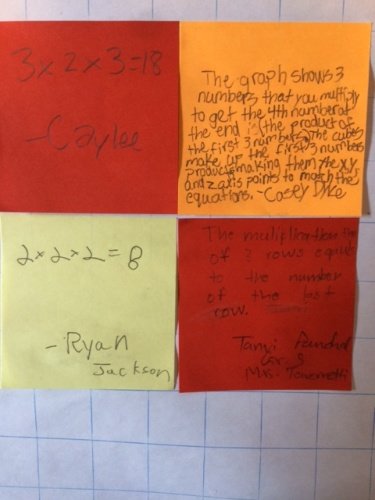 3×2×3=18
-Caylee
The graph shows 3
numbers that you multiply
to get the 4th number at
the end is the product of
the first 3 numbers. The cubes
make up the first 3 numbers
products making them the x,y
and z axis points to match the
equations. -Casey Dike
2×2×2=8
-Ryan
Jackson
The muliplication
of 3 rows equals
to the number
of the last
row.
Tanvi
Mrs.